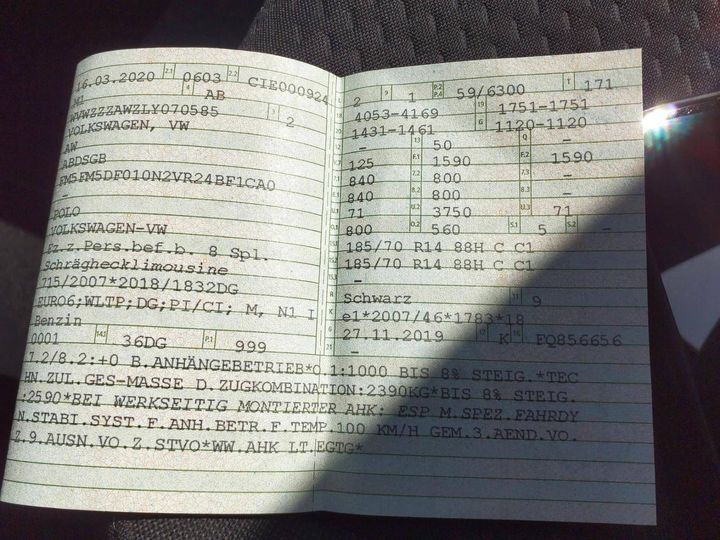 16.03.2020 2.1 0603 2.2 CIE000924
M1 4 AB
WVWZZZAWZLY070585 3 2
VOLKSWAGEN, VW
AW
ABDSGB
FM5FM5DF010N2VR24BF1CA0
-
POLO
VOLKSWAGEN-VW
Fz.z.Pers.bef.b. 8 Spl.
Schräghecklimousine
715/2007*2018/1832DG
EURO6;WLTP;DG;PI/CI; M, N1 I
Benzin
0001 14.1 36DG P.1 999
L 2 9 1 P.2 P.4 59/6300 T 171
18 4053-4169 19 1751-1751
20 1431-1461 G 1120-1120
- 13 50 Q -
125 F.1 1590 F.2 1590
840 7.2 800 7.3 -
840 8.2 800 8.3 -
71 U.2 3750 U.3 71
800 O.2 560 S.1 5 S.2 -
185/70 R14 88H C C1
185/70 R14 88H C C1
-
R Schwarz 11 9
K e1*2007/46*1783*18
6 27.11.2019 17 K 16 FQ856656
21 -
7.2/8.2:+0 B.ANHÄNGEBETRIEB*O.1:1000 BIS 8% STEIG.*TEC
HN.ZUL.GES-MASSE D.ZUGKOMBINATION:2390KG*BIS 8% STEIG.
:2590*BEI WERKSEITIG MONTIERTER AHK: ESP M.SPEZ.FAHRDY
N.STABI.SYST.F.ANH.BETR.F.TEMP.100 KM/H GEM.3.AEND.VO.
Z.9.AUSN.VO.Z.STVO*WW.AHK LT.EGTG*